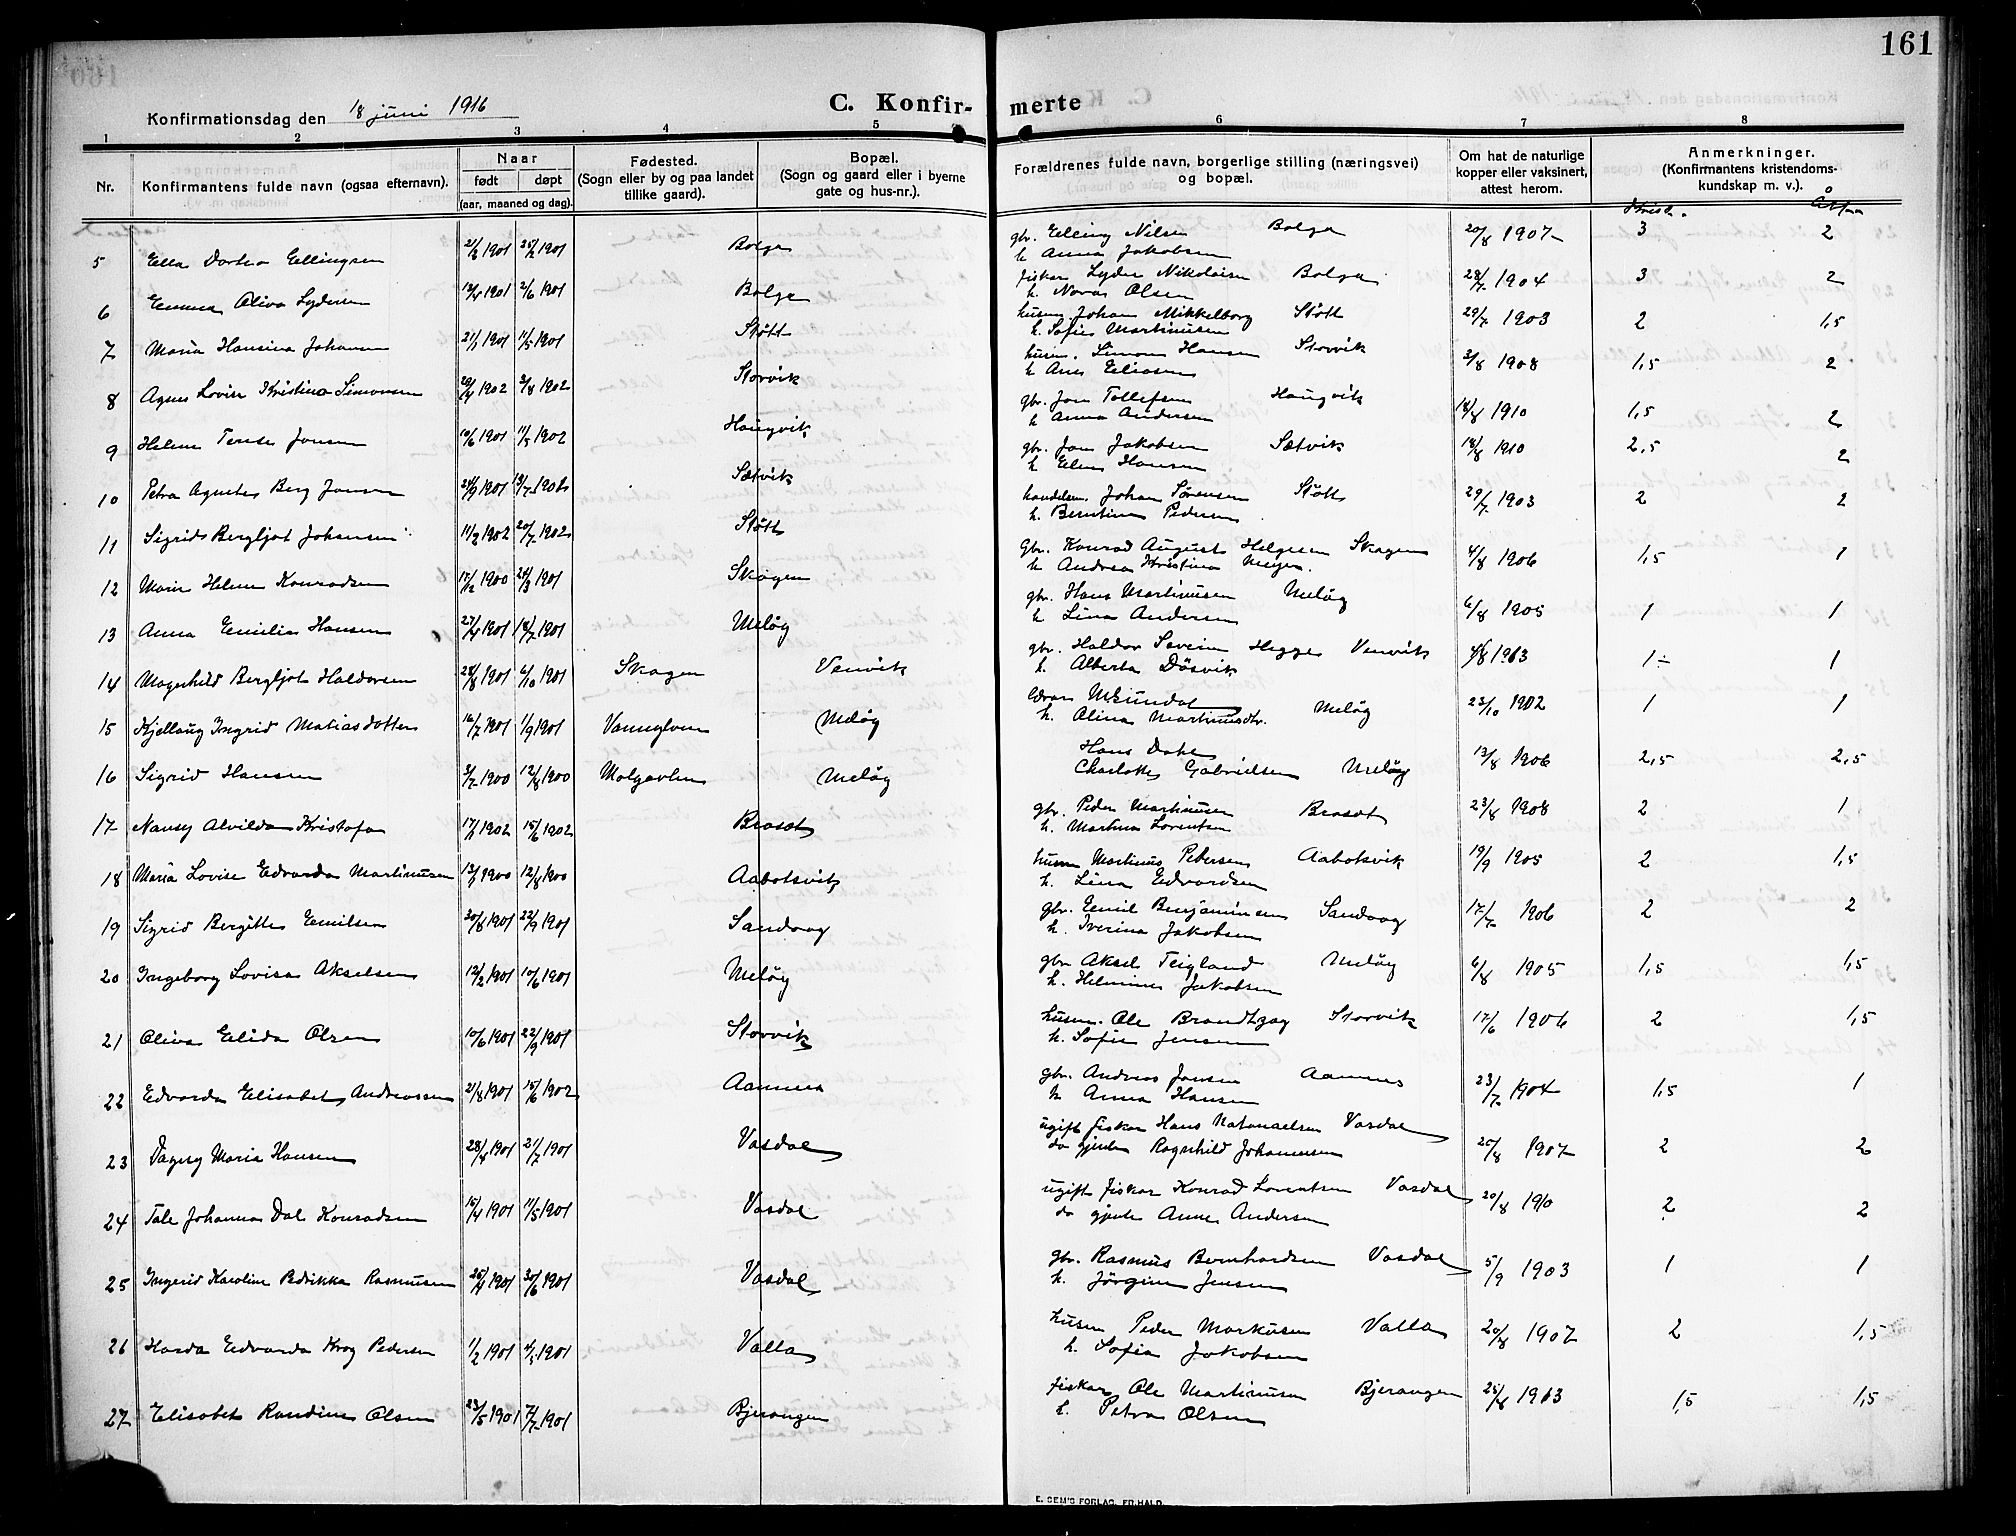 161
Konfirmationsdag den 18 juni 1916
C. Konfirmerte
1 2 3 4 5 6 7 8
Nr.
Konfirmantens fulde navn (ogsaa efternavn).
Naar
født døpt
(aar, maaned og dag).
Fødested.
(Sogn eller by og paa landet
tillike gaard).
Bopæl.
(Sogn og gaard eller i byerne
gate og hus-nr.).
Forældrenes fulde navn, borgerlige stilling (næringsvei)
og bopæl.
Om hat de naturlige
kopper eller vaksinert,
attest herom.
Anmerkninger.
(Konfirmantens kristendoms-
kundskap m. v.).
5 Ella Dortea Ellingsen 21/2 1901 25/2 1901 Bolga gbr. Elling Nilsen Bolga 20/8 1907 3 2
h. Anna Jakobsen
6 Emma Oliva Lydersen 13/4 1901 2/6 1901 Bolga fisker Lyder Nikolaisen Bolga 28/7 1904 3 2
h. Nora Olsen
7 Maria Hansina Johansen 21/1 1901 11/5 1901 Støtt husm. Johan Mikkelborg Støtt 29/7 1903 2 1,5
h. Sofie Martinusen
8 Agnes Lovise Kristina Simonsen 20/4 1902 3/8 1902 Storvik husm. Simon Hansen Storvik 3/8 1908 1,5 2
h. Ane Eliasen
9 Helene Terese Jonsen 10/6 1901 11/5 1902 Haugvik gbr. Jon Tollefsen Haugvik 18/8 1910 1,5 2
h. Anna Andersen
10 Petra Agnetes Berg Jonsen 24/9 1901 13/7 1902 Sætvik gbr. Jon Jakobsen Sætvik 18/8 1910 2,5 2
h. Elen Hansen
11 Sigrid Bergljot Johansen 11/2 1902 20/7 1902 Støtt handelsm. Johan Sørensen Støtt 29/7 1903 2 2
h. Berntine Pedersen
12 Marie Helene Konradsen 15/12 1900 24/3 1901 Skagen Gbr. Konrad August Helgesen Skagen 4/8 1906 1,5 1
h. Andrea Kristina Meyer.
13 Anna Emilie Hansen 27/4 1901 14/7 1901 Meløy gbr. Hans Martinusen Meløy 6/8 1905 1 1
h. Lina Andersen
14 Magnhild Bergljot Haldorsen 28/8 1901 6/10 1901 Skagen Venvik gbr. Haldor Severin Hegge Venvik 1 ÷ 1
h. Alberta Døsvik
15 Kjellaug Ingrid Matiasdotter 16/7 1901 1/9 1901 Meløy lærer M. Sundal Meløy 23/10 1902 1 1
h. Alina Martinusdtr.
16 Sigrid Hansen 3/7 1900 12/8 1900 Meløy Hans Dahl 13/8 1906 2,5 2,5
Charlotte Gabrielsen Meløy
17 Nansy Alvilda Kristofa 17/1 1902 15/6 1902 Brasøt gbr. Peder Martinusen Brasøt 23/8 1908 2 1
h. Martina Lorentsen
18 Maria Lovise Edvarda Martinusen 1900 12/8 1900 Aabotsvik husm Martinus Petersen Aabotsvik 19/9 1905 2 1,5
h. Lina Edvardsen
19 Sigrid Bergitte Emilsen 30/8 1901 22/9 1901 Sandvag gbr. Emil Benjaminsen Sandvag 17/7 1906 2 2
h. Iverina Jakobsen
20 Ingeborg Lovisa Akselsen 12/2 1901 10/6 1901 Meløy gbr Aksel Teigland Meløy 6/8 1905 1,5 1,5
h. Helmine Jakobsen
21 Oliva Elida Olsen 10/6 1901 22/9 1901 Storvik husm. Ole Brandtzag Storvik 17/6 1906 2 1,5
h. Sofie Jensen
22 Edvarda Elisabet Andreassen 21/8 1901 15/6 1902 Aamnes gbr. Andreas Jonsen Aamnes 23/7 1904 1,5 1
h. Anna Hansen
23 Dagny Maria Hansen 28/4 1901 21/7 1901 Vasdal ugift fisker Hans Natanaelsen Vasdal 20/8 1907 2 2
do gjente Ragnhild Johannesen
24 Tale Johanna Dal Konradsen 15/4 1901 11/5 1901 Vasdal ugift fisker Konrad Lorentsen Vasdal 20/8 1910 2 2
do gjente Anne Andersen
25 Ingerid Karoline Rasmusen 25/4 1901 30/6 1901 Vasdal gbr. Rasmus Bernhardsen Vasdal 5/9 1903 1 1
h. Jørgine Jensen
26 Harda Edvarda Krog Pedersen 1/2 1901 4/5 1901 Valla husm Peder Markusen Valla 20/8 1907 2 1,5
h. Sofia Jakobsen
27 Elisabet Randine Olsen 23/5 1901 1901 Bjerangen fisker Ole Martinusen Bjerangen 25/8 1913 1,5 1,5
h. Petra Olsen
E. SEM'S FORLAG, FR.HALD.